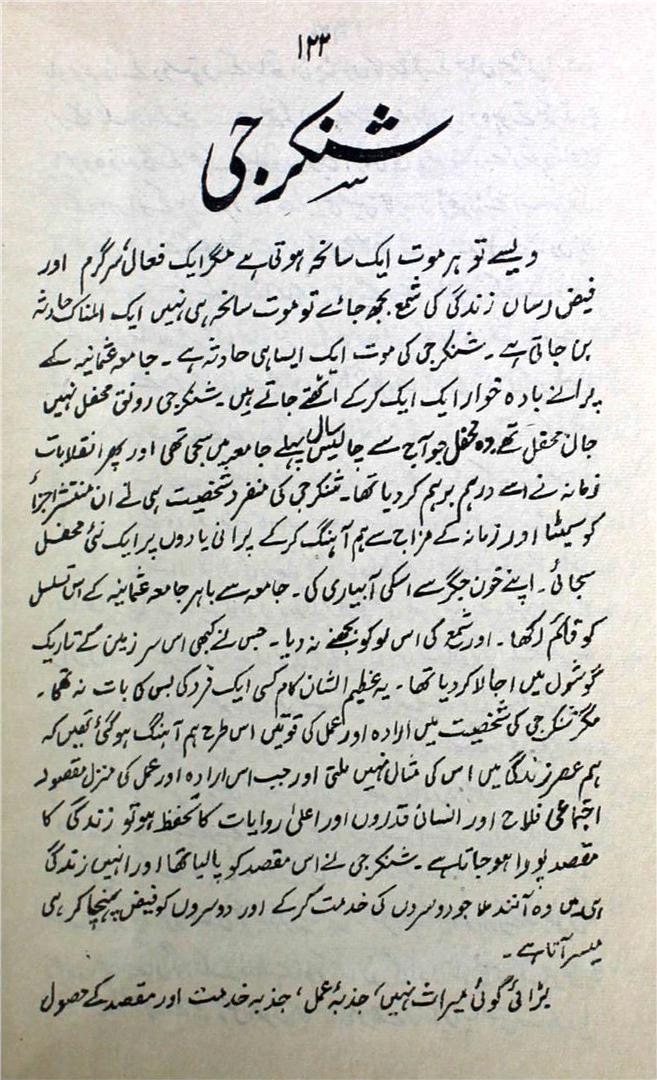 ۱۲۲
شنکر جی
ویسے تو ہر موت ایک سانحہ ہوتی ہے مگر ایک فعال، سرگرم اور
فیض رساں زندگی کی شمع بجھ جائے تو موت سانحہ ہی نہیں ایک المناک حادثہ
بن جاتی ہے۔ شنکر جی کی موت ایک ایسا ہی حادثہ ہے۔ جامعہ عثمانیہ کے
پرانے بادہ خوار ایک ایک کرکے اٹھتے جاتے ہیں۔ شنکر جی رونق محفل نہیں
جان محفل تھے۔ وہ محفل جو آج سے چالیس سال پہلے جامعہ میں سجی تھی اور پھر انقلابات
زمانہ نے اسے درہم برہم کر دیا تھا۔ شنکر جی کی منفرد شخصیت ہی نے ان منتشر اجزأ
کو سمیٹا اور زمانہ کے مزاج سے ہم آہنگ کرکے پرانی یادوں پر ایک نئی محفل
سجائی۔ اپنے خون جگر سے اسکی آبیاری کی۔ جامعہ سے باہر جامعہ عثمانیہ کے اس تسلسل
کو قائم رکھا۔ اور شمع کی اس لو کو بجھنے نہ دیا۔ جس نے کبھی اس سر زمین کے تاریک
گوشوں میں اجالا کر دیا تھا۔ یہ عظیم الشان کام کسی ایک فرد کی بس کا بات نہ تھا۔
مگر شنکر جی کی شخصیت میں ارادہ اور عمل کی قوتیں اس طرح ہم آہنگ ہو گئی تھیں کہ
ہم عصر زندگی میں اس کی مثال نہیں ملتی اور جب اس ارادہ اور عمل کی منزل مقصود
اجتماعی فلاح اور انسانی قدروں اور اعلیٰ روایات کا تحفظ ہو تو زندگی کا
مقصد پورا ہو جاتا ہے۔ شنکر جی نے اس مقصد کو پا لیا تھا اور انہیں زندگی
ہی میں وہ آنند ملا جو دوسروں کی خدمت کرکے اور دوسروں کو فیض پہنچا کر ہی
میسر آتا ہے۔
بڑائی کوئی میراث نہیں، جذبۂ عمل، جذبہ خدمت اور مقصد کے حصول